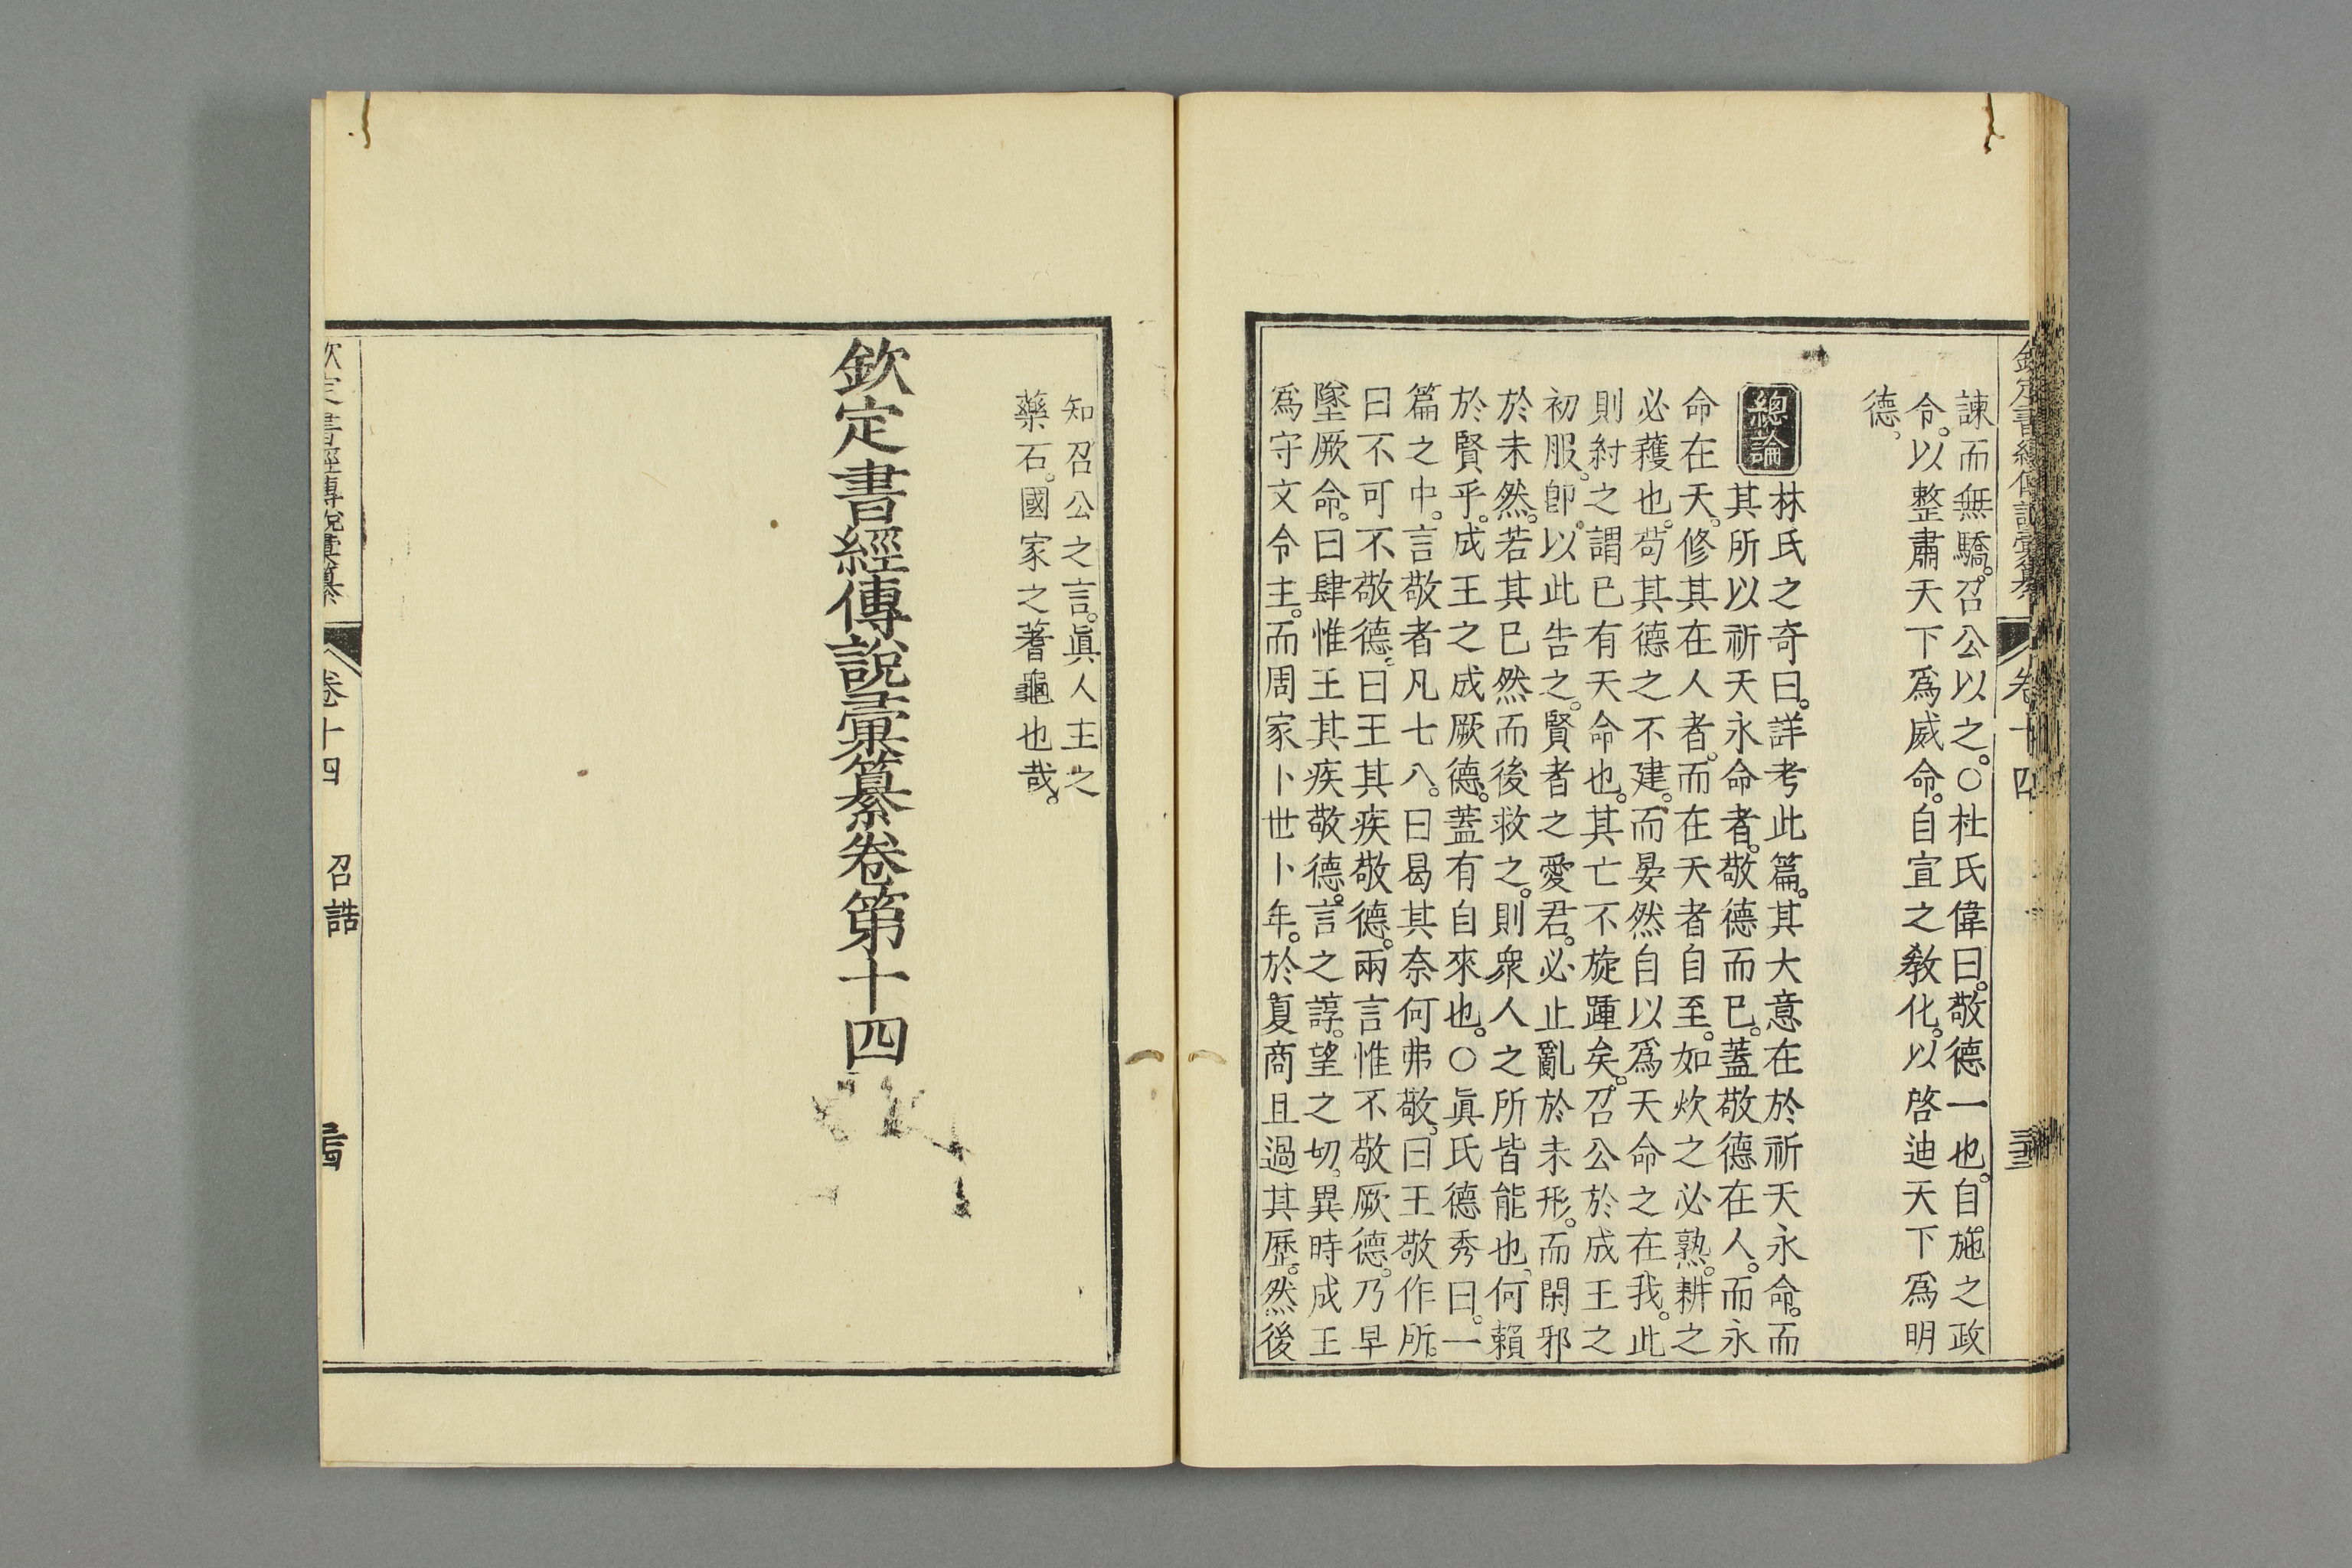 欽定書經傳說彙纂 卷十四
諫而無驕。召公以之。○杜氏偉曰。敬德一也。自施之政
令。以整肅天下爲威命。自宣之敎化。以啓迪天下爲明
德。
總論
林氏之奇曰。詳考此篇。其大意在於祈天永命。而
其所以祈天永命者。敬德而已。蓋敬德在人。而永
命在天。修其在人者。而在天者自至。如炊之必熟。耕之
必穫也。苟其德之不建。而晏然自以爲天命之在我。此
則紂之謂已有天命也。其亡不旋踵矣。召公於成王之
初服。卽以此告之。賢者之愛君。必止亂於未形。而閑邪
於未然。若其已然而後救之。則衆人之所皆能也。何賴
於賢乎。成王之成厥德。蓋有自來也。○眞氏德秀曰。一
篇之中。言敬者凡七八。曰曷其奈何弗敬。曰王敬作所。
曰不可不敬德。曰王其疾敬德。兩言惟不敬厥德。乃早
墜厥命。曰肆惟王其疾敬德。言之諄。望之切。異時成王
爲守文令主。而周家卜世卜年。於夏商且過其歷。然後
知召公之言。眞人主之
藥石。國家之蓍龜也哉。
欽定書經傳說彙纂卷第十四
欽定書經傳說彙纂 卷十四 召誥